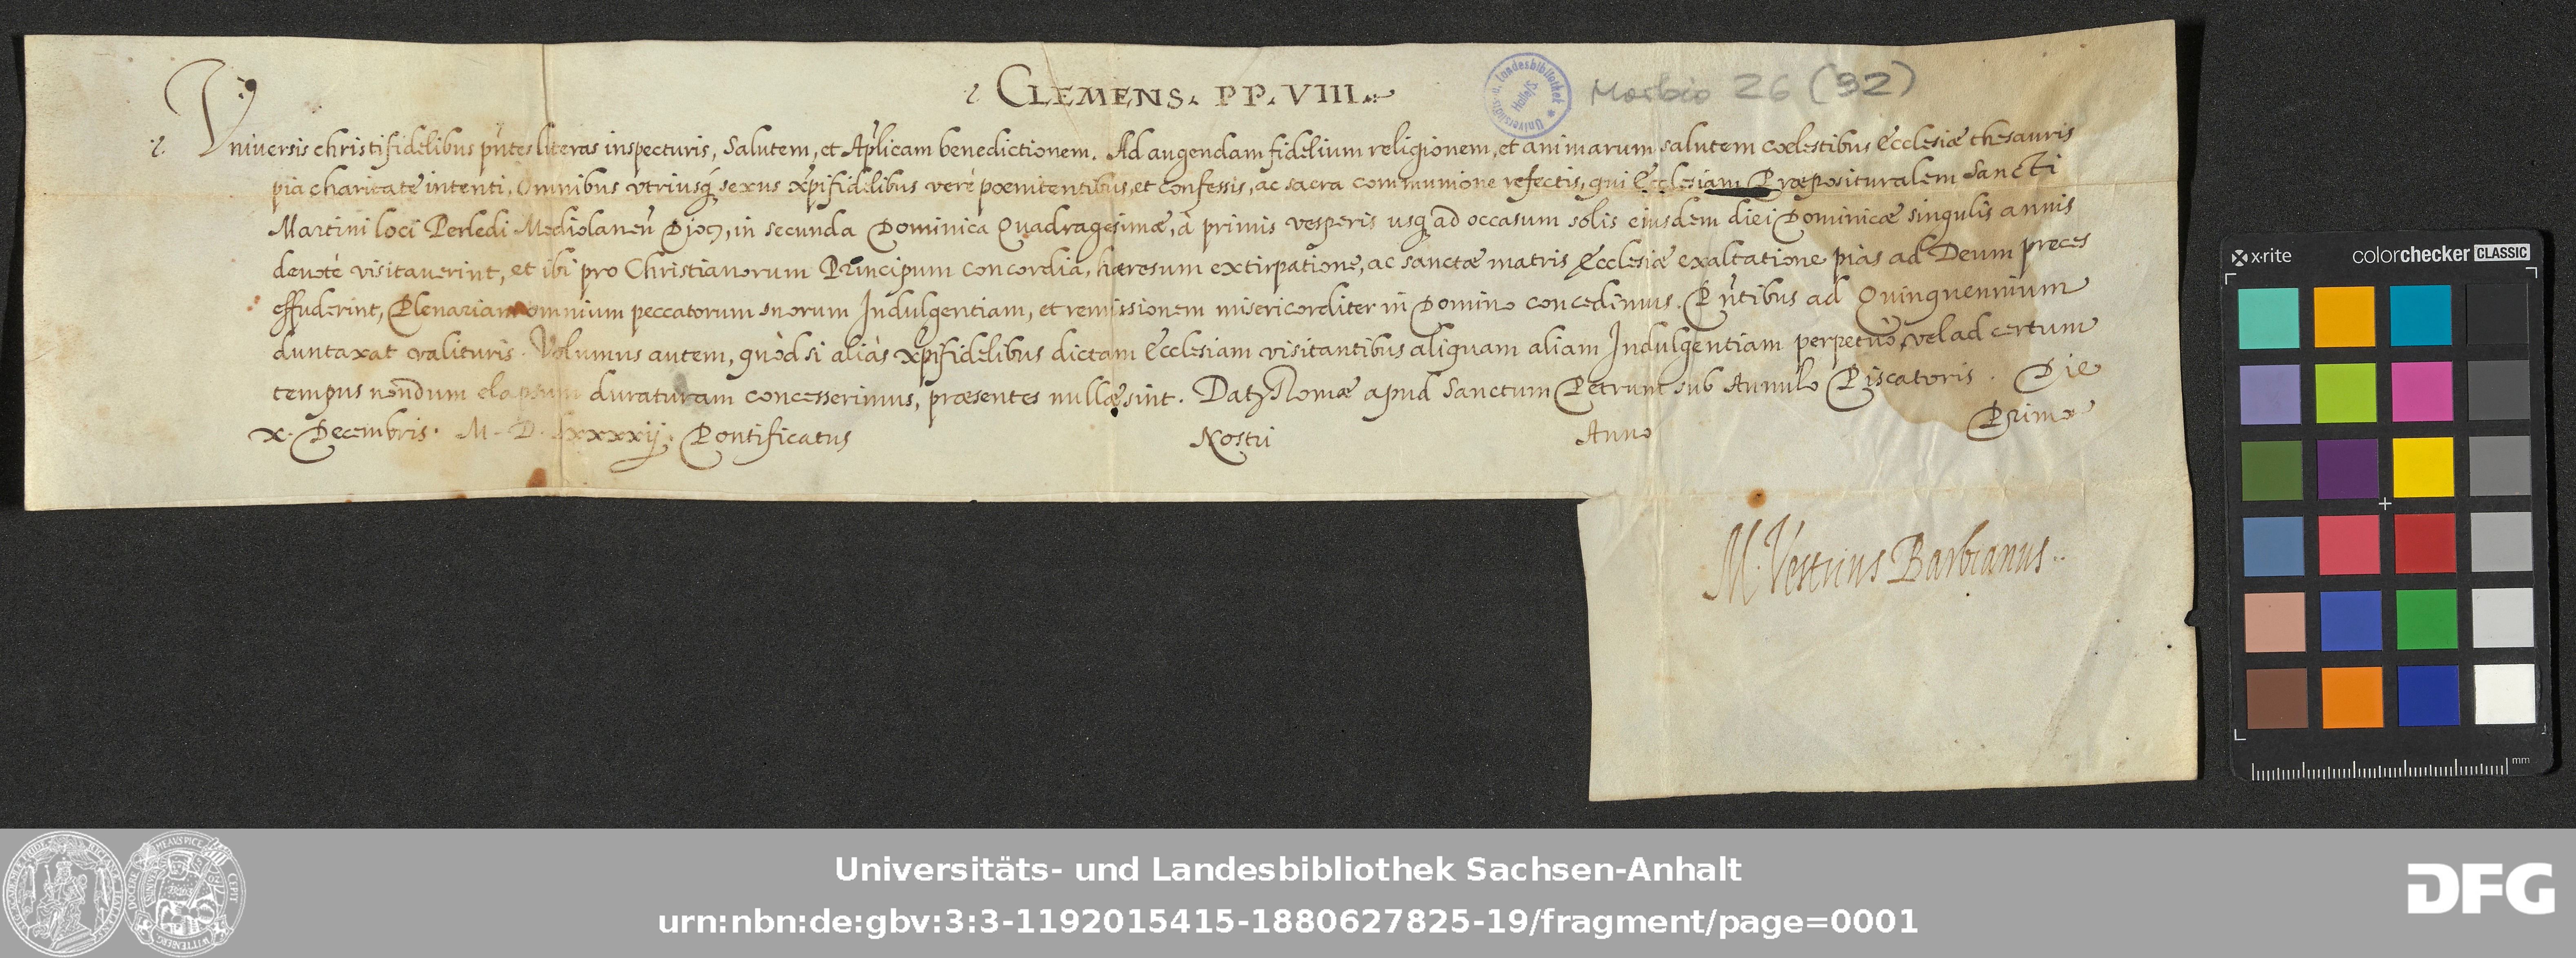 CLEMENS. PP. VIII.
Morbio 26 (92)
Universitäts- u. Landesbibliothek Halle/S
Vniuersis christifidelibus pn̄tes literas inspecturis, Salutem, et Ap̄licam benedictionem. Ad augendam fidelium religionem, et animarum salutem cœlestibus Ecclesiæ thesauris
pia charitate intenti, Omnibus vtriusq̨ sexus xp̄ifidelibus verè pœnitentibus, et confessis, ac sacra communione refectis, qui Ecclesiam Præposituralem Sancti
Martini loci Perledi Mediolanen̄ Dioc̨, in secunda Dominica Quadragesimæ, à primis vesperis usq̨ ad occasum solis eiusdem diei Dominicæ singulis annis
deuotè visitauerint, et ibi pro Christianorum Principum concordia, hæresum extirpatione, ac sanctæ matris Ecclesiæ exaltatione pias ad Deum preces
effuderint, Plenariam omnium peccatorum suorum Indulgentiam, et remissionem misericorditer in Domino concedimus. Pn̄tibus ad Quinquennium
duntaxat valituris. Volumus autem, quòd si aliàs xp̄ifidelibus dictam Ecclesiam visitantibus aliquam aliam Indulgentiam perpetuò, vel ad certum
tempus nondum elapsum duraturam concesserimus, præsentes nullæ sint. Datȝ Romæ apud Sanctum Petrum sub Annulo Piscatoris. Die
x. Decembris. M. D. lxxxxij. Pontificatus Nostri Anno Primo
M. Vestrius Barbianus.
x·rite colorchecker CLASSIC
mm
Universitäts- und Landesbibliothek Sachsen-Anhalt
urn:nbn:de:gbv:3:3-1192015415-1880627825-19/fragment/page=0001
DFG